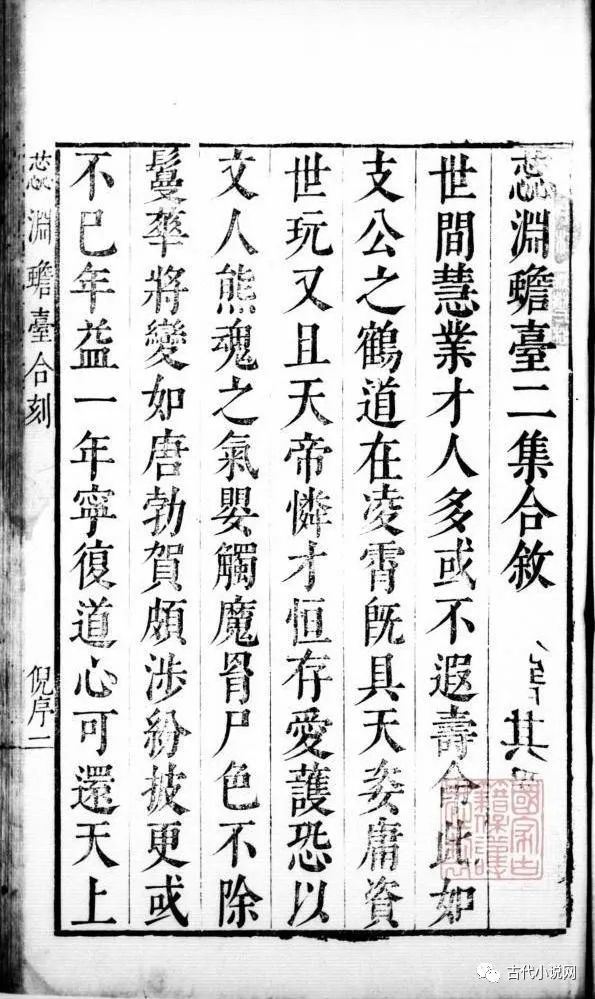 蕊淵蟾臺二集合敘
其
世間慧業才人多或不遐壽命此如
支公之鶴道在凌霄旣具天姿庸資
世玩又且天帝憐才恒存愛護恐以
文人熊魂之氣嬰觸魔骨尸色不除
鬘華將變如唐勃賀頗涉紛披更或
不已年益一年寧復道心可還天上
蕊淵蟾臺合刻
倪序一
國家古籍保護
古代小说网